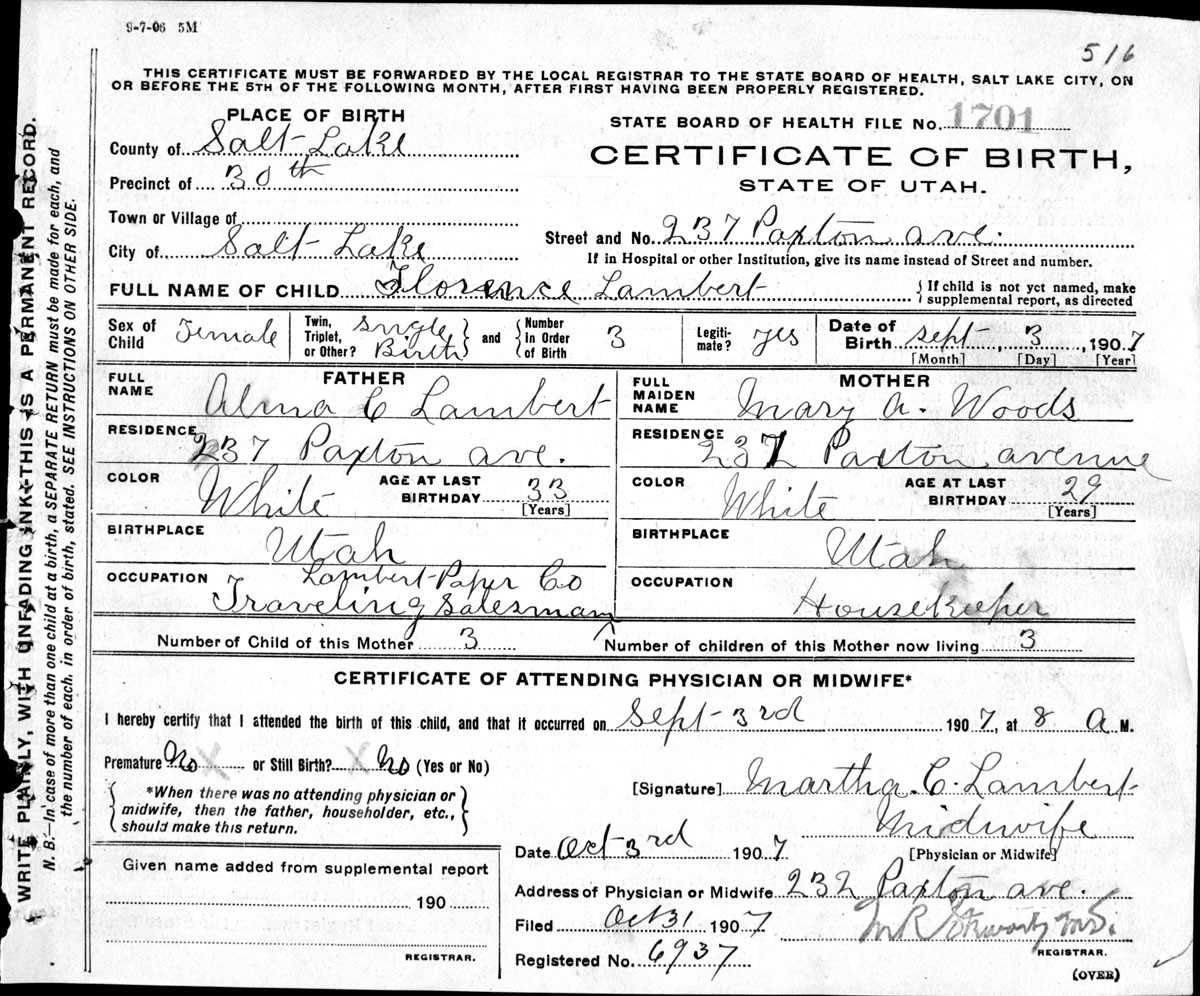 9-7-06 5M
516
THIS CERTIFICATE MUST BE FORWARDED BY THE LOCAL REGISTRAR TO THE STATE BOARD OF HEALTH, SALT LAKE CITY, ON
OR BEFORE THE 5TH OF THE FOLLOWING MONTH, AFTER FIRST HAVING BEEN PROPERLY REGISTERED.
PLACE OF BIRTH
STATE BOARD OF HEALTH FILE No. 1701
County of Salt Lake
CERTIFICATE OF BIRTH,
Precinct of 30th
STATE OF UTAH.
Town or Village of
City of Salt Lake
Street and No. 237 Paxton ave.
If in Hospital or other Institution, give its name instead of Street and number.
FULL NAME OF CHILD Florence Lambert
If child is not yet named, make
supplemental report, as directed
Sex of Child Female
Twin, Triplet, or Other? Single Birth
and
Number in Order of Birth 3
Legiti-mate? yes
Date of Birth Sept 3, 1907
[Month] [Day] [Year]
FATHER
FULL NAME Alma C Lambert
RESIDENCE 237 Paxton ave.
COLOR White
AGE AT LAST BIRTHDAY 33
[Years]
BIRTHPLACE Utah
OCCUPATION Lambert Paper Co
Traveling Salesman
MOTHER
FULL MAIDEN NAME Mary A. Woods
RESIDENCE 237 Paxton avenue
COLOR White
AGE AT LAST BIRTHDAY 29
[Years]
BIRTHPLACE Utah
OCCUPATION Housekeeper
Number of Child of this Mother 3
Number of children of this Mother now living 3
CERTIFICATE OF ATTENDING PHYSICIAN OR MIDWIFE*
I hereby certify that I attended the birth of this child, and that it occurred on Sept 3rd 1907, at 8 A M.
Premature No X or Still Birth? X No (Yes or No)
*When there was no attending physician or
midwife, then the father, householder, etc.,
should make this return.
[Signature] Martha. C. Lambert
Midwife
[Physician or Midwife]
Date Oct 3rd 1907
Given name added from supplemental report
190
REGISTRAR.
Address of Physician or Midwife 232 Paxton ave.
Filed Oct 31 1907
REGISTRAR.
Registered No. 6937
(OVER)
WRITE PLAINLY, WITH UNFADING INK—THIS IS A PERMANENT RECORD.
N. B.—In case of more than one child at a birth, a SEPARATE RETURN must be made for each, and
the number of each, in order of birth, stated. SEE INSTRUCTIONS ON OTHER SIDE.